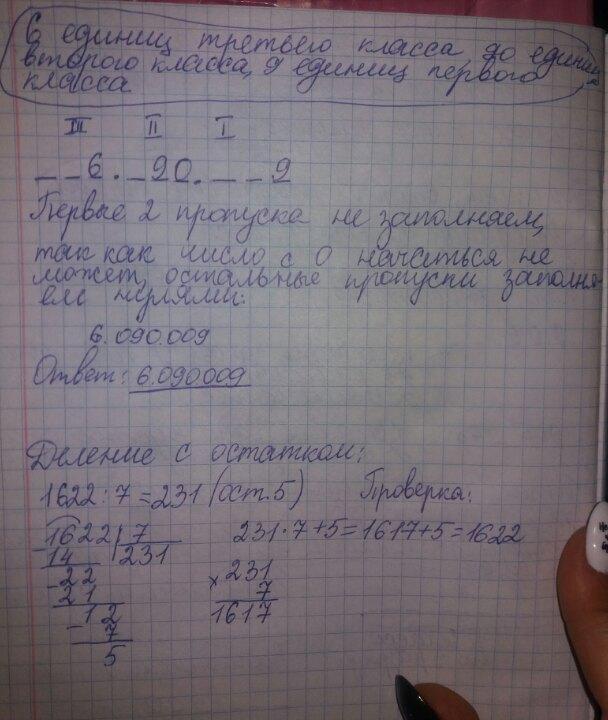 6 единиц третьего класса, 90 единиц
второго класса, 9 единиц первого
класса
III II I
_ _ 6 . _ 9 0 . _ _ 9
Первые 2 пропуска не заполняем,
так как число с 0 начаться не
может, остальные пропуски заполня-
ем нулями:
6.090.009
Ответ: 6.090009
Деление с остатком:
1622 : 7 = 231 (ост. 5) Проверка:
1622 | 7 231 · 7 + 5 = 1617 + 5 = 1622
14 231
- 22 × 231
21 7
- 12 1617
7
5